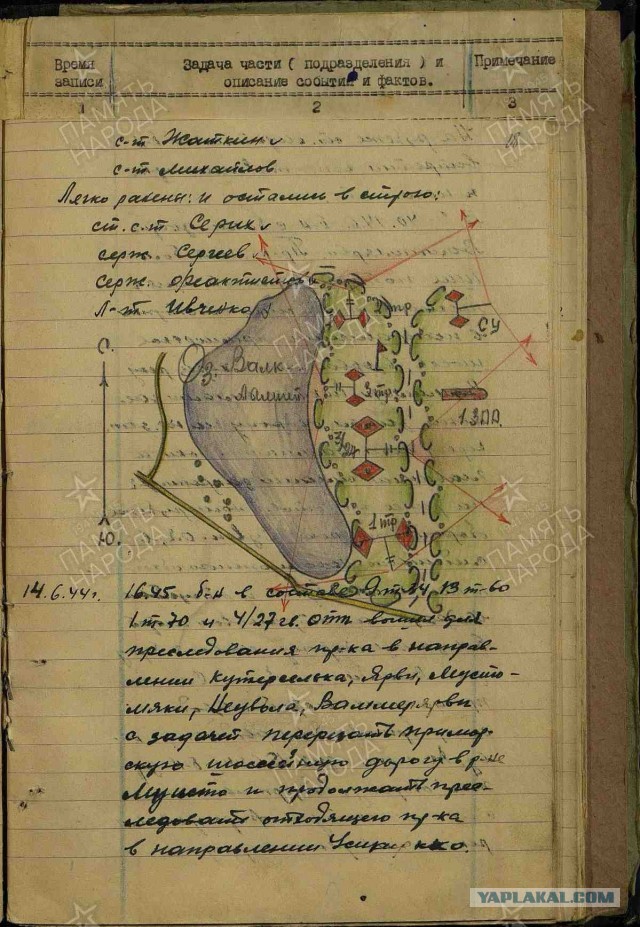 Время записи
Задача части ( подразделения ) и
описание событий и фактов.
Примечание
1
2
3
с-т Жаткин
с-т Михайлов
Легко ранены: и остались в строю:
ст. с-т Серик
серж. Сергеев
серж.
Л-т. Ивченко
С.
Оз. Валк-
2 тр
СУ
3 тр
1 ЗПП.
1 тр
Ю.
14.6.44г.
16.45 б-н в составе 9 т-34, 13 т-во
1 т-70 и 4/27 гв. отп вышел для
преследования пр-ка в направ-
лении Кутерселька, Ярви, Мусто-
мяки, Неувола, Ваммерярви
с задачей перерезать примор-
скую шоссейную дорогу в р-не
Муисто и продолжать прес-
ледовать отходящего пр-ка
в направлении
ПАМЯТЬ НАРОДА
YAPLAKAL.COM